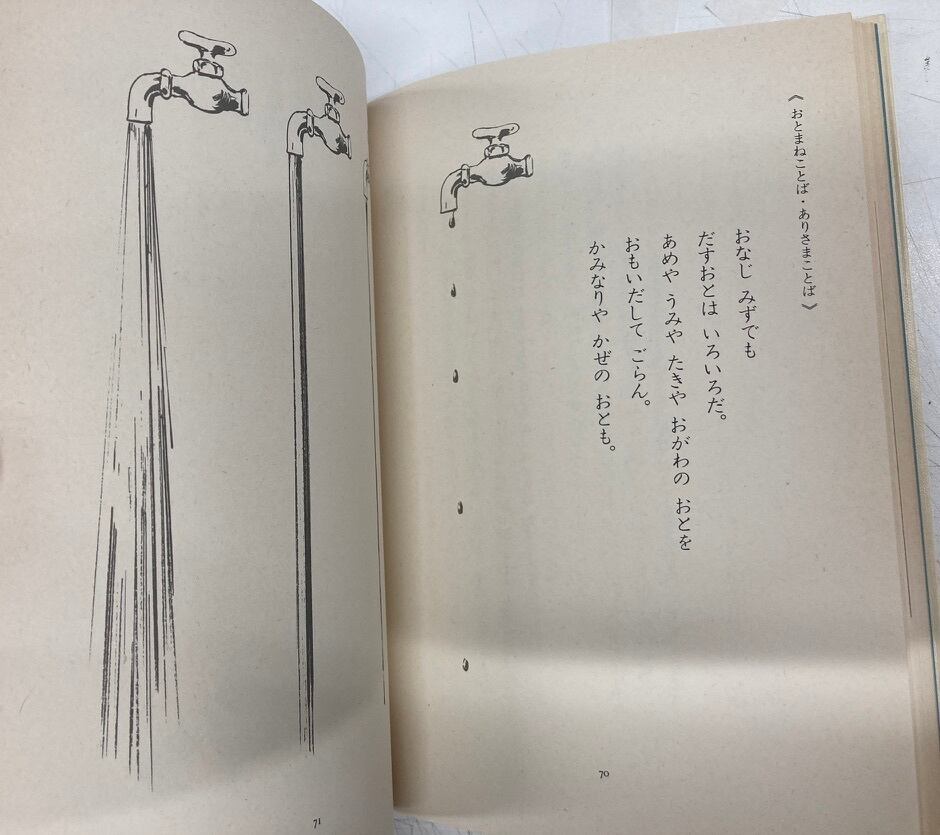 《おとまねことば・ありさまことば》
おなじ みずでも
だすおとは いろいろだ。
あめや うみや たきや おがわの おとを
おもいだして ごらん。
かみなりや かぜの おとも。
70
71